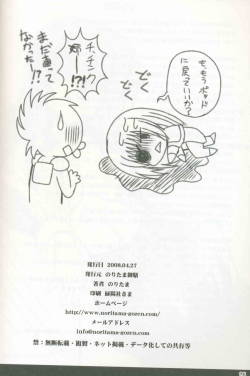 も、もうポッド
に戻っていいか?
どく
どく
チ、チンク
姉ー!?!
まだ直って
なかったー!?
発行日 2008.04.27
発行元 のりたま御膳
著者 のりたま
印刷 緑陽社さま
ホームページ
http://www.noritama-gozen.com/
メールアドレス
info@noritama-gozen.com
禁:無断転載・複製・ネット掲載・データ化しての共有等